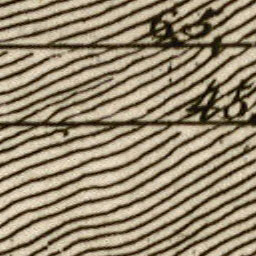 65
45